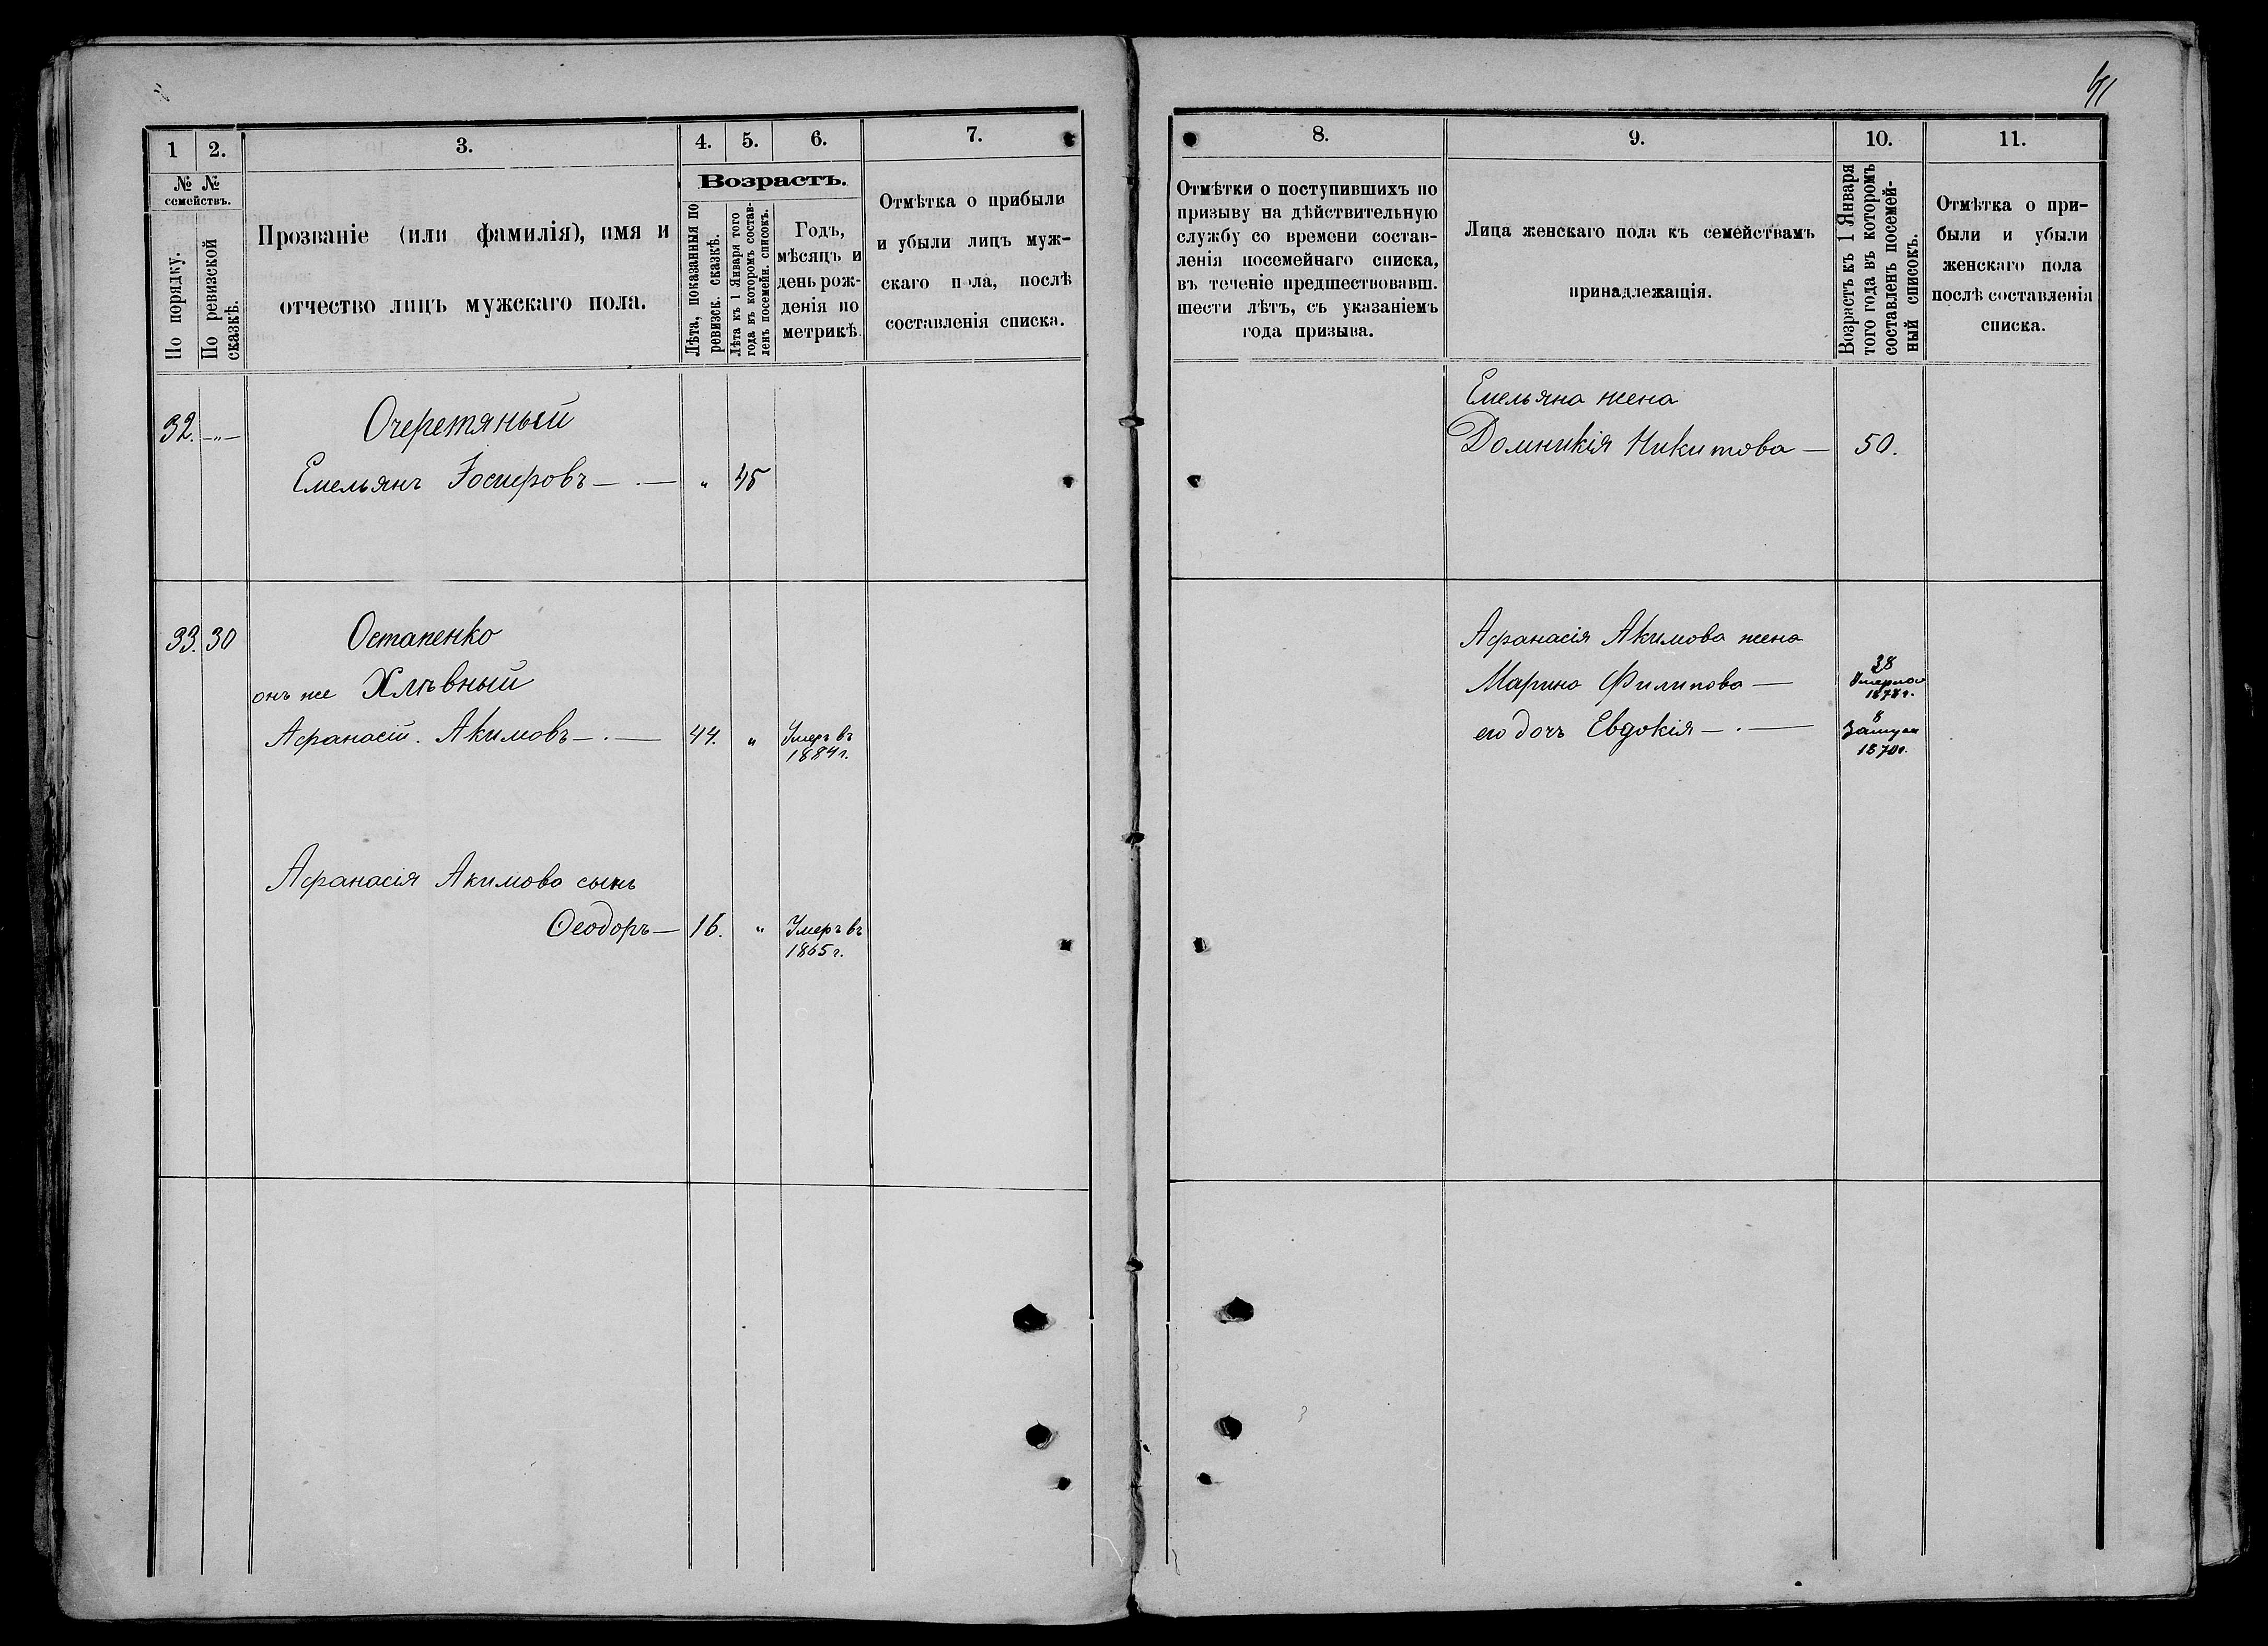 41
1
2.
3.
4.
5.
6.
7.
№ №
семействъ.
По порядку.
По ревизской
сказкѣ.
Прозваніе (или фамилія), имя и
отчество лицъ мужскаго пола.
Возрастъ.
Лѣта, показанныя по
ревизск. сказкѣ.
Лѣта къ 1 Января того
года въ которомъ состав-
ленъ посемейн. списокъ.
Годъ,
мѣсяцъ и
день рож-
денія по
метрикѣ.
Отмѣтка о прибыли
и убыли лицъ муж-
скаго пола, послѣ
составленія списка.
32. —"—
Очеретяный
Емельянъ Іосифовъ — . — " 45
33. 30
Остапенко
онъ же Хлѣвный
Афанасій . Акимовъ — . — 44. " Умеръ въ
1884 г.
Афанасія Акимова сынъ
Ѳеодоръ — 16. " Умеръ въ
1865 г.
8.
9.
10.
11.
Отмѣтки о поступившихъ по
призыву на дѣйствительную
службу со времени состав-
ленія посемейнаго списка,
въ теченіе предшествовавш.
шести лѣтъ, съ указаніемъ
года призыва.
Лица женскаго пола къ семействамъ
принадлежащія.
Возрастъ къ 1 Января
того года въ которомъ
составленъ посемей-
ный списокъ.
Отмѣтка о при-
были и убыли
женскаго пола
послѣ составленія
списка.
Емельяна жена
Домникія Никитова — 50.
Афанасія Акимова жена
Марина Филипова — 38
Умерла
1878 г.
его дочь Евдокія — . — 8
Замуж
1870 г.